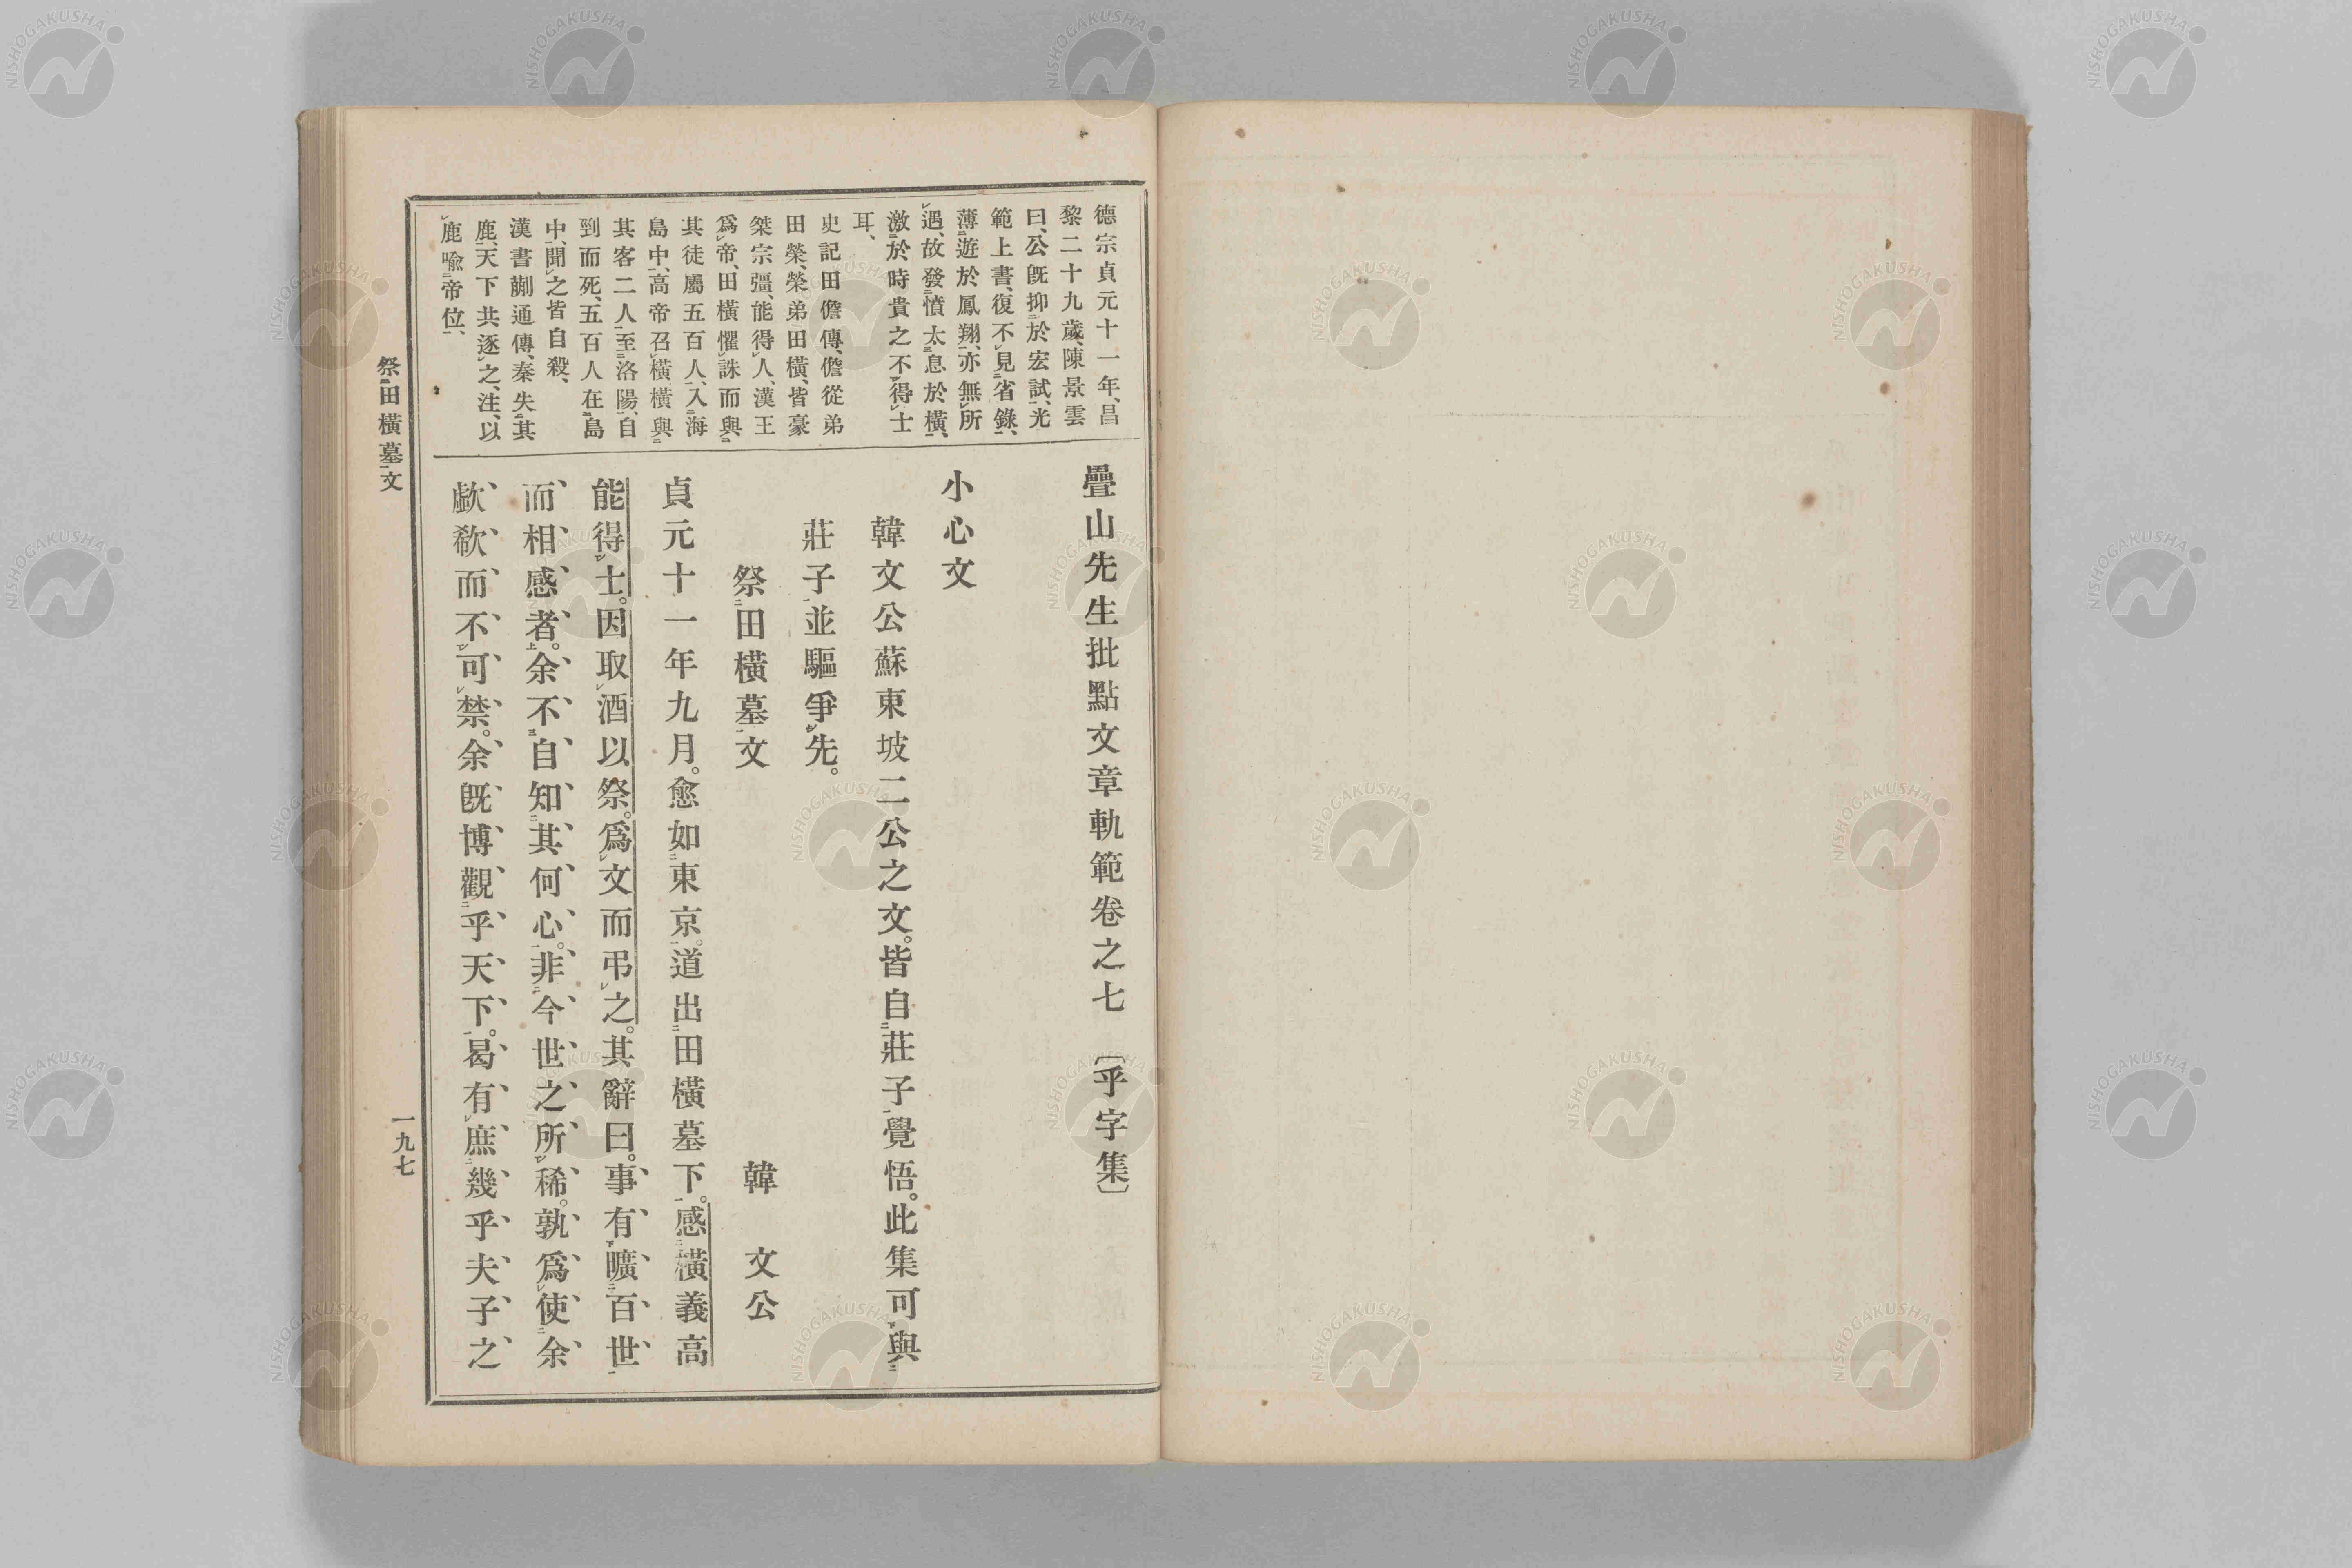 德宗貞元十一年、昌
黎二十九歲、陳景雲
曰、公既抑於宏試、光
範上書、復不見省錄、
薄遊於鳳翔、亦無所
遇、故發憤太息於橫、
激於時貴之不得士
耳、
史記田儋傳、儋從弟
田榮、榮弟田橫、皆豪
桀宗彊、能得人、漢王
爲帝、田橫懼誅而與
其徒屬五百人、入海
島中、高帝召橫橫與
其客二人至洛陽、自
剄而死、五百人在島
中、聞之皆自殺、
漢書蒯通傳、秦失其
鹿、天下共逐之、注、以
鹿喩帝位、
疊山先生批點文章軌範卷之七 〔乎字集〕
小心文
韓文公蘇東坡二公之文。皆自莊子覺悟。此集可與
莊子並驅爭先。
祭田橫墓文 韓文公
貞元十一年九月。愈如東京。道出田橫墓下。感橫義高
能得士。因取酒以祭。爲文而弔之。其辭曰。事有曠百世
而相感者。余不自知其何心。非今世之所稀。孰爲使余
歔欷而不可禁。余既博觀乎天下。曷有庶幾乎夫子之
祭田橫墓文
一九七
NISHOGAKUSHA